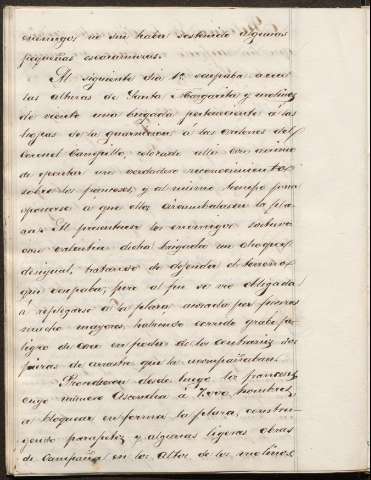 enemigos, no sin haber sostenido algunas
pequeñas escaramuzas.
Al siguiente dia 1º ocupaba aun
las alturas de Santa Margarita y molinos
de viento una brigada perteneciente á las
tropas de la guarnicion á las ordenes del
Coronel Campillo, colocado allí con ánimo
de ejecutar un verdadero reconocimiento
sobre los franceses, y al mismo tiempo para
oponerse á que ellos circunbalasen la pla-
za. Al presentarse los enemigos sostuvo
con valentia dicha brigada un choque
desigual, tratando de defender el terreno
que ocupaba, pero al fin se vio obligada
á replegarse á la plaza, acosada por fuerzas
mucho mayores, habiendo corrido grabe pe-
ligro de caer en poder de los contrarios dos
piezas de arrastre que la acompañaban.
Procedieron desde luego los franceses,
cuyo número ascendia á 7.000 hombres,
á bloquear en forma la plaza, constru-
yendo parapetos y algunas ligeras obras
de campaña en los altos de los molinos